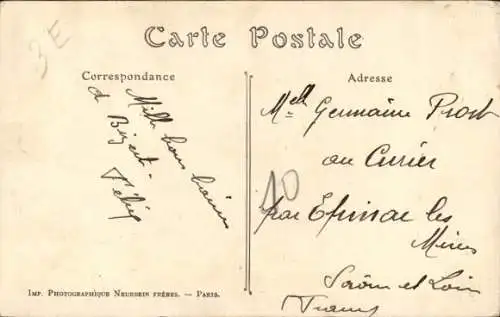 3E
Carte Postale
Correspondance
Adresse
Mille bons baisers
de Bizerte
Félix
Melle Germaine Prost
au Curier
par Epinac les
Mines
Saône et Loire
France
10
IMP. PHOTOGRAPHIQUE NEURDEIN FRÈRES. — PARIS.